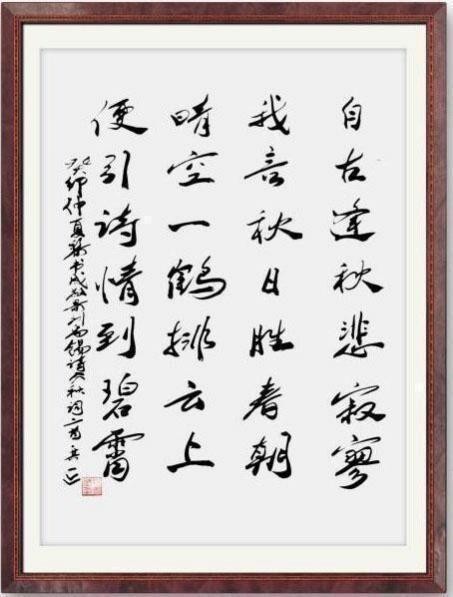 自古逢秋悲寂寥
我言秋日胜春朝
晴空一鶴排云上
便引詩情到碧霄
癸卯仲夏 刘禹锡 秋词一首